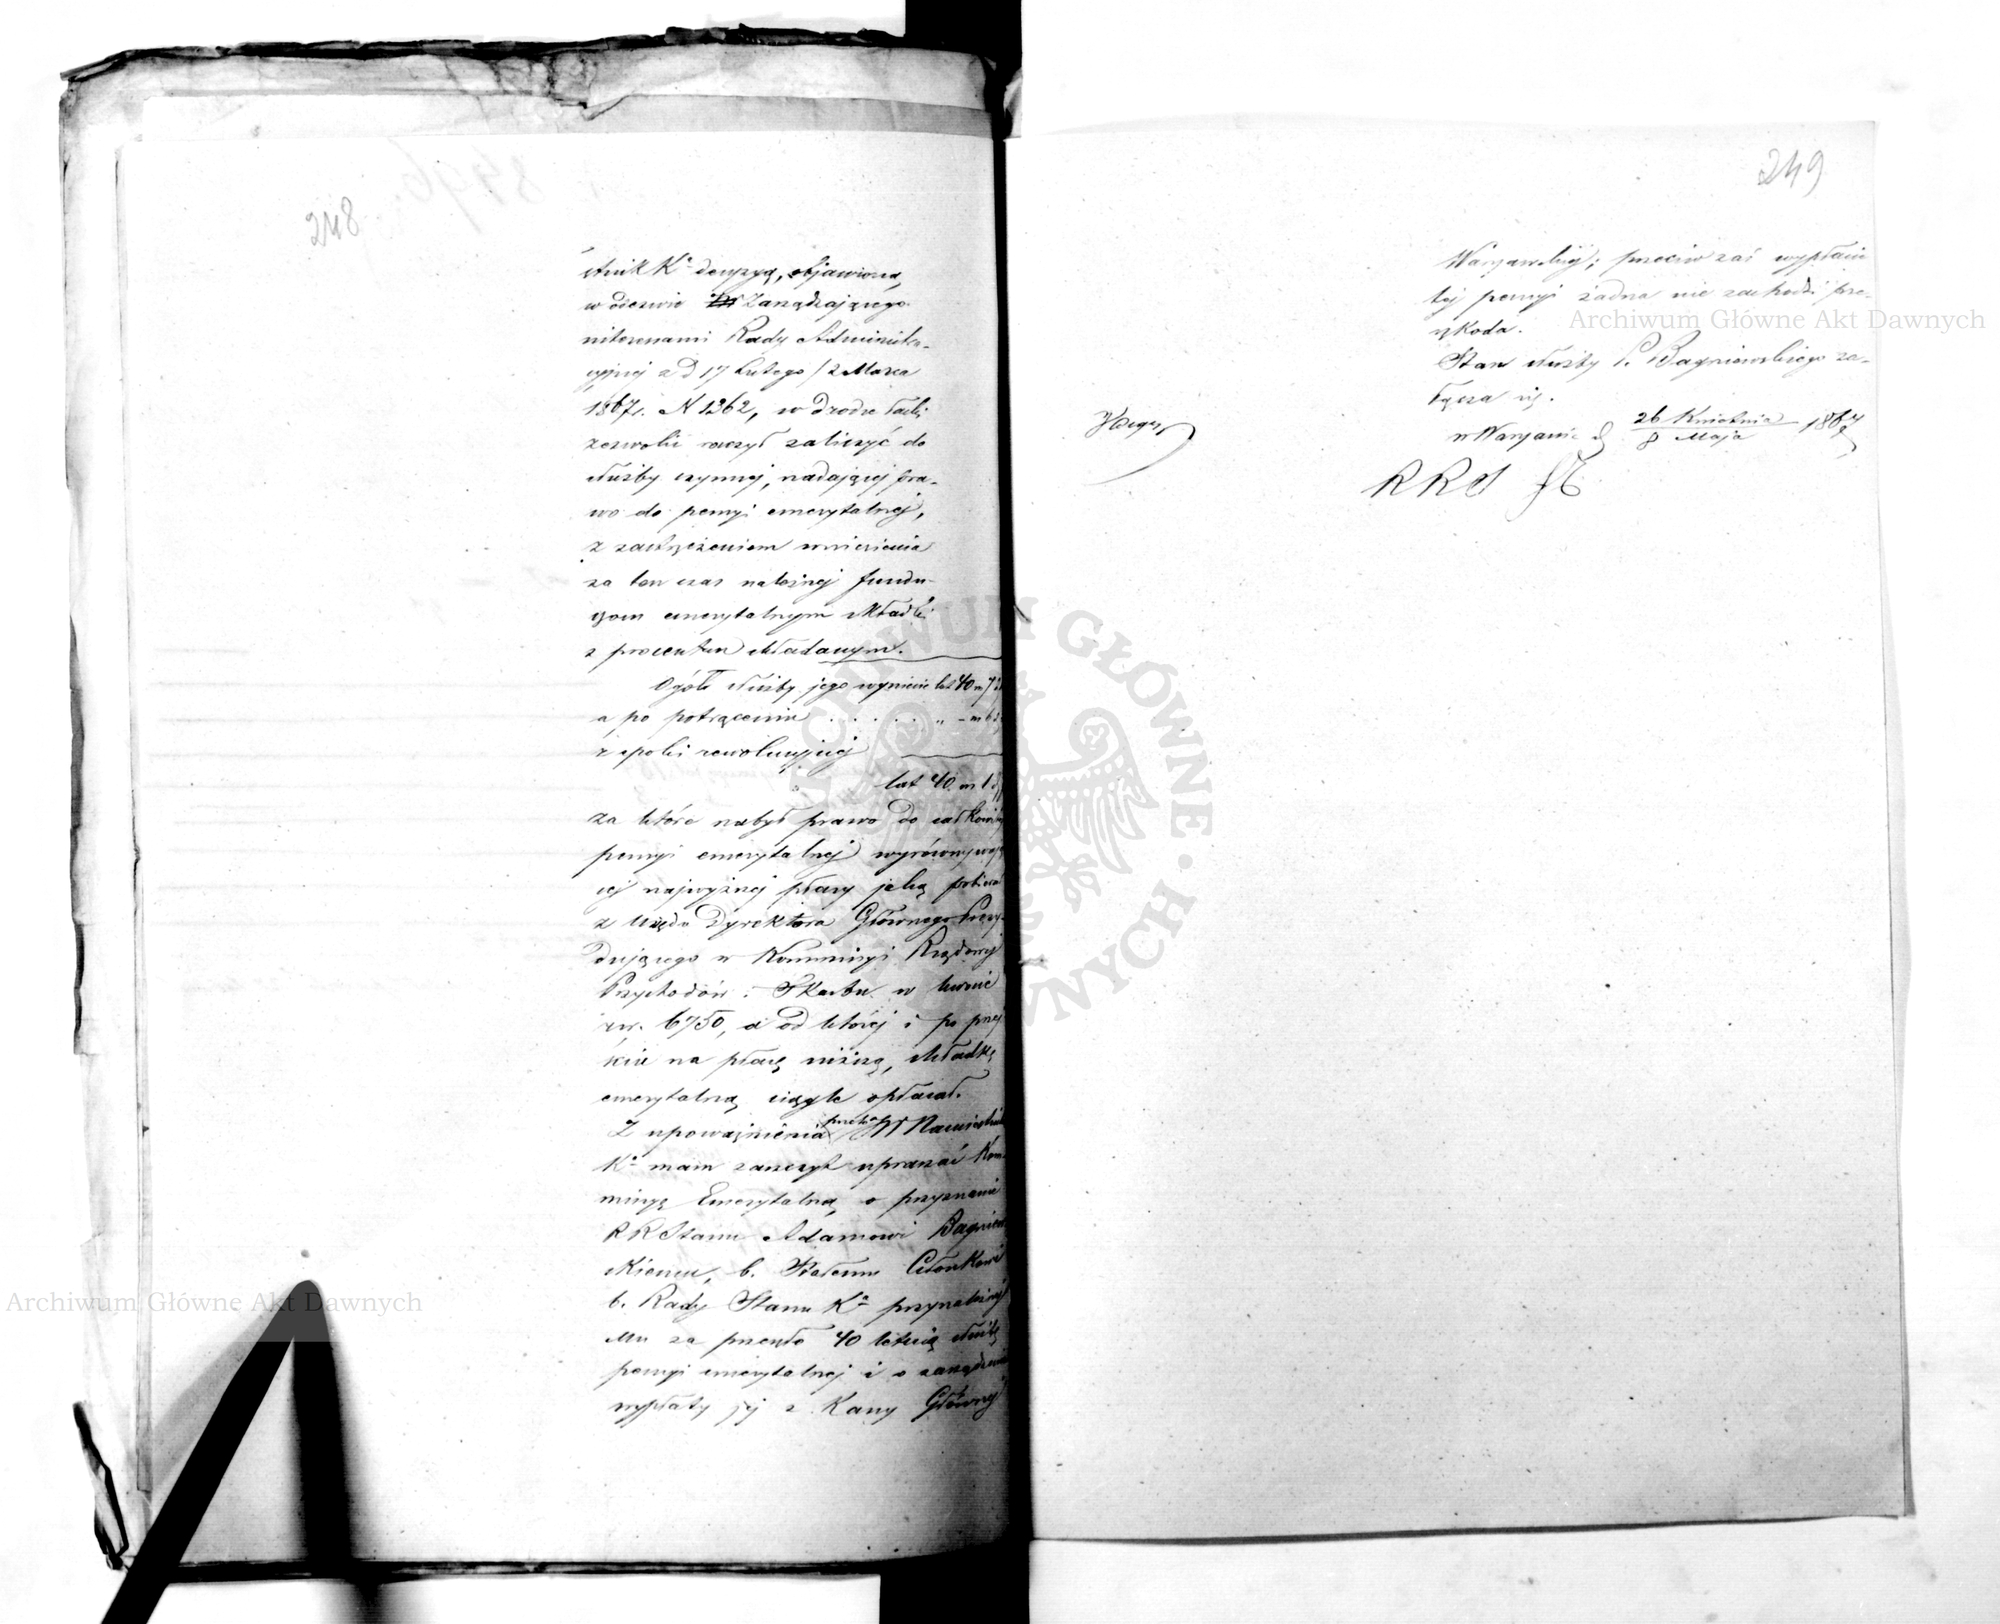 248
stnik Ka decyzyą, objawioną
w odezwie Zarządzającego
interesami Rady Administra-
cyjnej z d 17 Lutego / 2 Marca
1867 r. N 1362, w drodze łaski
zezwolić raczył zaliczyć do
służby czynnej, nadającej pra-
wo do pensyi emerytalnej,
z zastrzeżeniem wniesienia
za ten czas należnej fundu-
szom emerytalnym składki
z procentem składanym.
Ogół służby jego wyniesie lat 40 m 7
a po potrąceniu . . . . . . „ – m 6
z epoki rewolucyjnej
lat 40 m 1
za które nabył prawo do całkowitej
pensyi emerytalnej wyrównywają
cej najwyższej płacy jaką pobierał
z Urzędu Dyrektora Głównego Prezy-
dującego w Kommissyi Rządowej
Przychodów i Skarbu w kwocie
rsr. 6750, a od której i po przej
ściu na płacę niższą, składkę
emerytalną ciągle opłacał.
Z upoważnienia przeto JW Namiestnika
Ka mam zaszczyt upraszać Kom-
missyę Emerytalną o przyznanie
RRStanu Adamowi Bagniew
skiemu, b. Stałemu Członkowi
b. Rady Stanu Ka przynależnej
Mu za przeszło 40 letnią służbę
pensyi emerytalnej i o zarządzenie
wypłaty jej z Kassy Głównej
249
Warszawskiej; przeciw zaś wypłacie
tej pensyi żadna nie zachodzi prze-
szkoda.
Stan służby P. Bagniewskiego za-
łącza się.
w Warszawie d 26 Kwietnia / 8 Maja 1867
RRS
Archiwum Główne Akt Dawnych
Archiwum Główne Akt Dawnych
ARCHIWUM GŁÓWNE AKT DAWNYCH